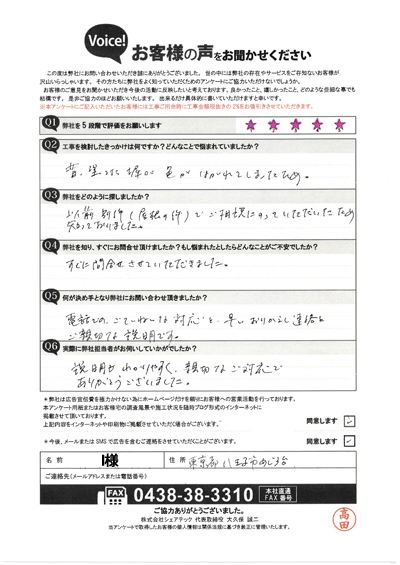 Voice!
お客様の声をお聞かせください
この度は弊社にお問い合わせいただき誠にありがとうございました。世の中には弊社の存在やサービスをご存知ないお客様が
沢山いらっしゃいます。その方たちに弊社を知っていただくためのアンケートにご協力いただけないでしょうか。
お客様のご意見をお聞かせいただき今後の活動に反映したいと考えております。良かったこと、嬉しかったこと、どのような些細な事でも
結構です。是非ご協力のほどお願いいたします。出来るだけ具体的に書いていただけますと幸いです。
※本アンケートにご記入いただいたお客様には工事ご用命時に工事金額総額の2%をお値引きさせていただきます。
Q1 弊社を5段階で評価をお願いします ★★★★★
Q2 工事を検討したきっかけは何ですか？どんなことで悩まれていましたか？
昔、塗った塀が色がはがれてしまったため。
Q3 弊社をどのように探しましたか？
以前別件（屋根の件）でご相談にのっていただいたため
知っておりました。
Q4 弊社を知り、すぐにお問合せ頂けましたか？もし悩まれたとしたらどんなことがご不安でしたか？
すぐに問合せさせていただきました。
Q5 何が決め手となり弊社にお問い合わせ頂きましたか？
電話での、ていねいな対応と、早い おりかえし連絡と
ご親切な説明です。
Q6 実際に弊社担当者がお伺いしていかがでしたか？
説明がわかりやすく、親切なご対応で
ありがとうございました。
＊弊社は広告宣伝費を極力かけない為にホームページだけを頼りにお客様への営業活動を行っております。
本アンケート用紙またはお客様宅の調査風景や施工状況を随時ブログ形式のインターネットに
掲載させて頂いております。
上記内容をインターネットや印刷物に掲載させていただく場合がございます。 同意します ✓
＊今後、メールまたはSMSで広告を含むご連絡をさせていただくことがございます。 同意します ✓
名前 I様 住所 東京都八王子市めじろ台
ご連絡先(メールアドレスまたは電話番号)
FAX 0438-38-3310 本社直通 FAX番号
ご協力ありがとうございました。
株式会社シェアテック 代表取締役 大久保 誠二
当アンケートで取得したお客様の個人情報は関係法規に基づき厳正に管理いたします。
高田